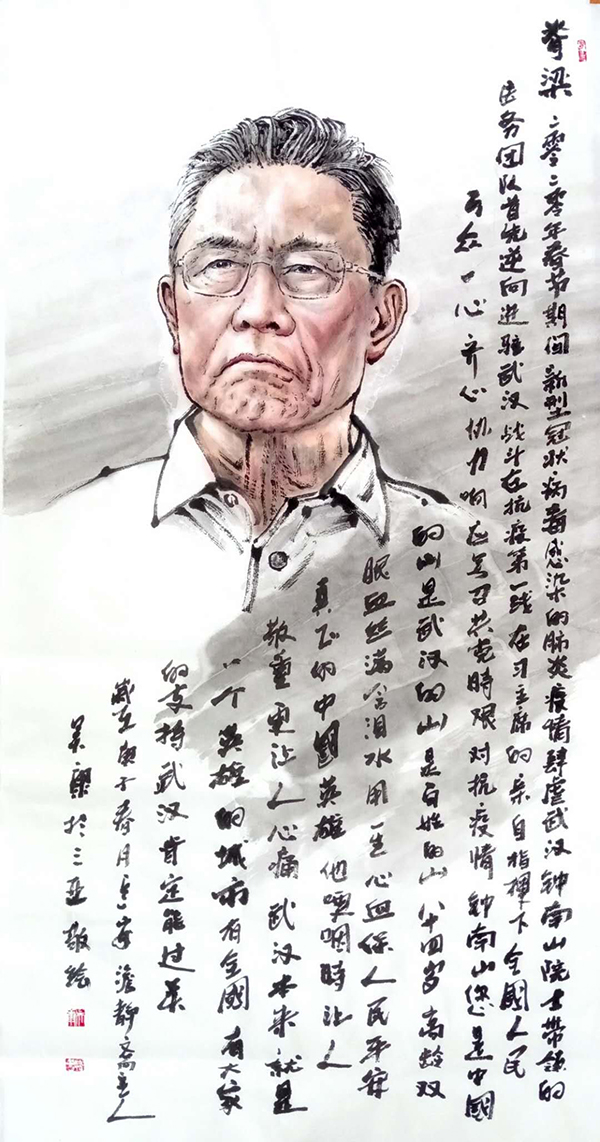 脊梁 二零二零年春节期间新型冠状病毒感染的肺炎疫情肆虐武汉钟南山院士带领的
医务团队首先逆向进驻武汉战斗在抗疫第一线在习主席的亲自指挥下全國人民
万众一心齐心协力响应号召共克時艰对抗疫情钟南山您是中國
的山是武汉的山是百姓的山八十四岁高龄双
眼血丝满含泪水用一生心血保人民平安
真正的中國英雄他哽咽時让人
敬重更让人心痛武汉本来就是
一个英雄的城市有全國有大家
的支持武汉肯定能过关
岁在庚子春月 澹静斋主人
於三亚敬绘